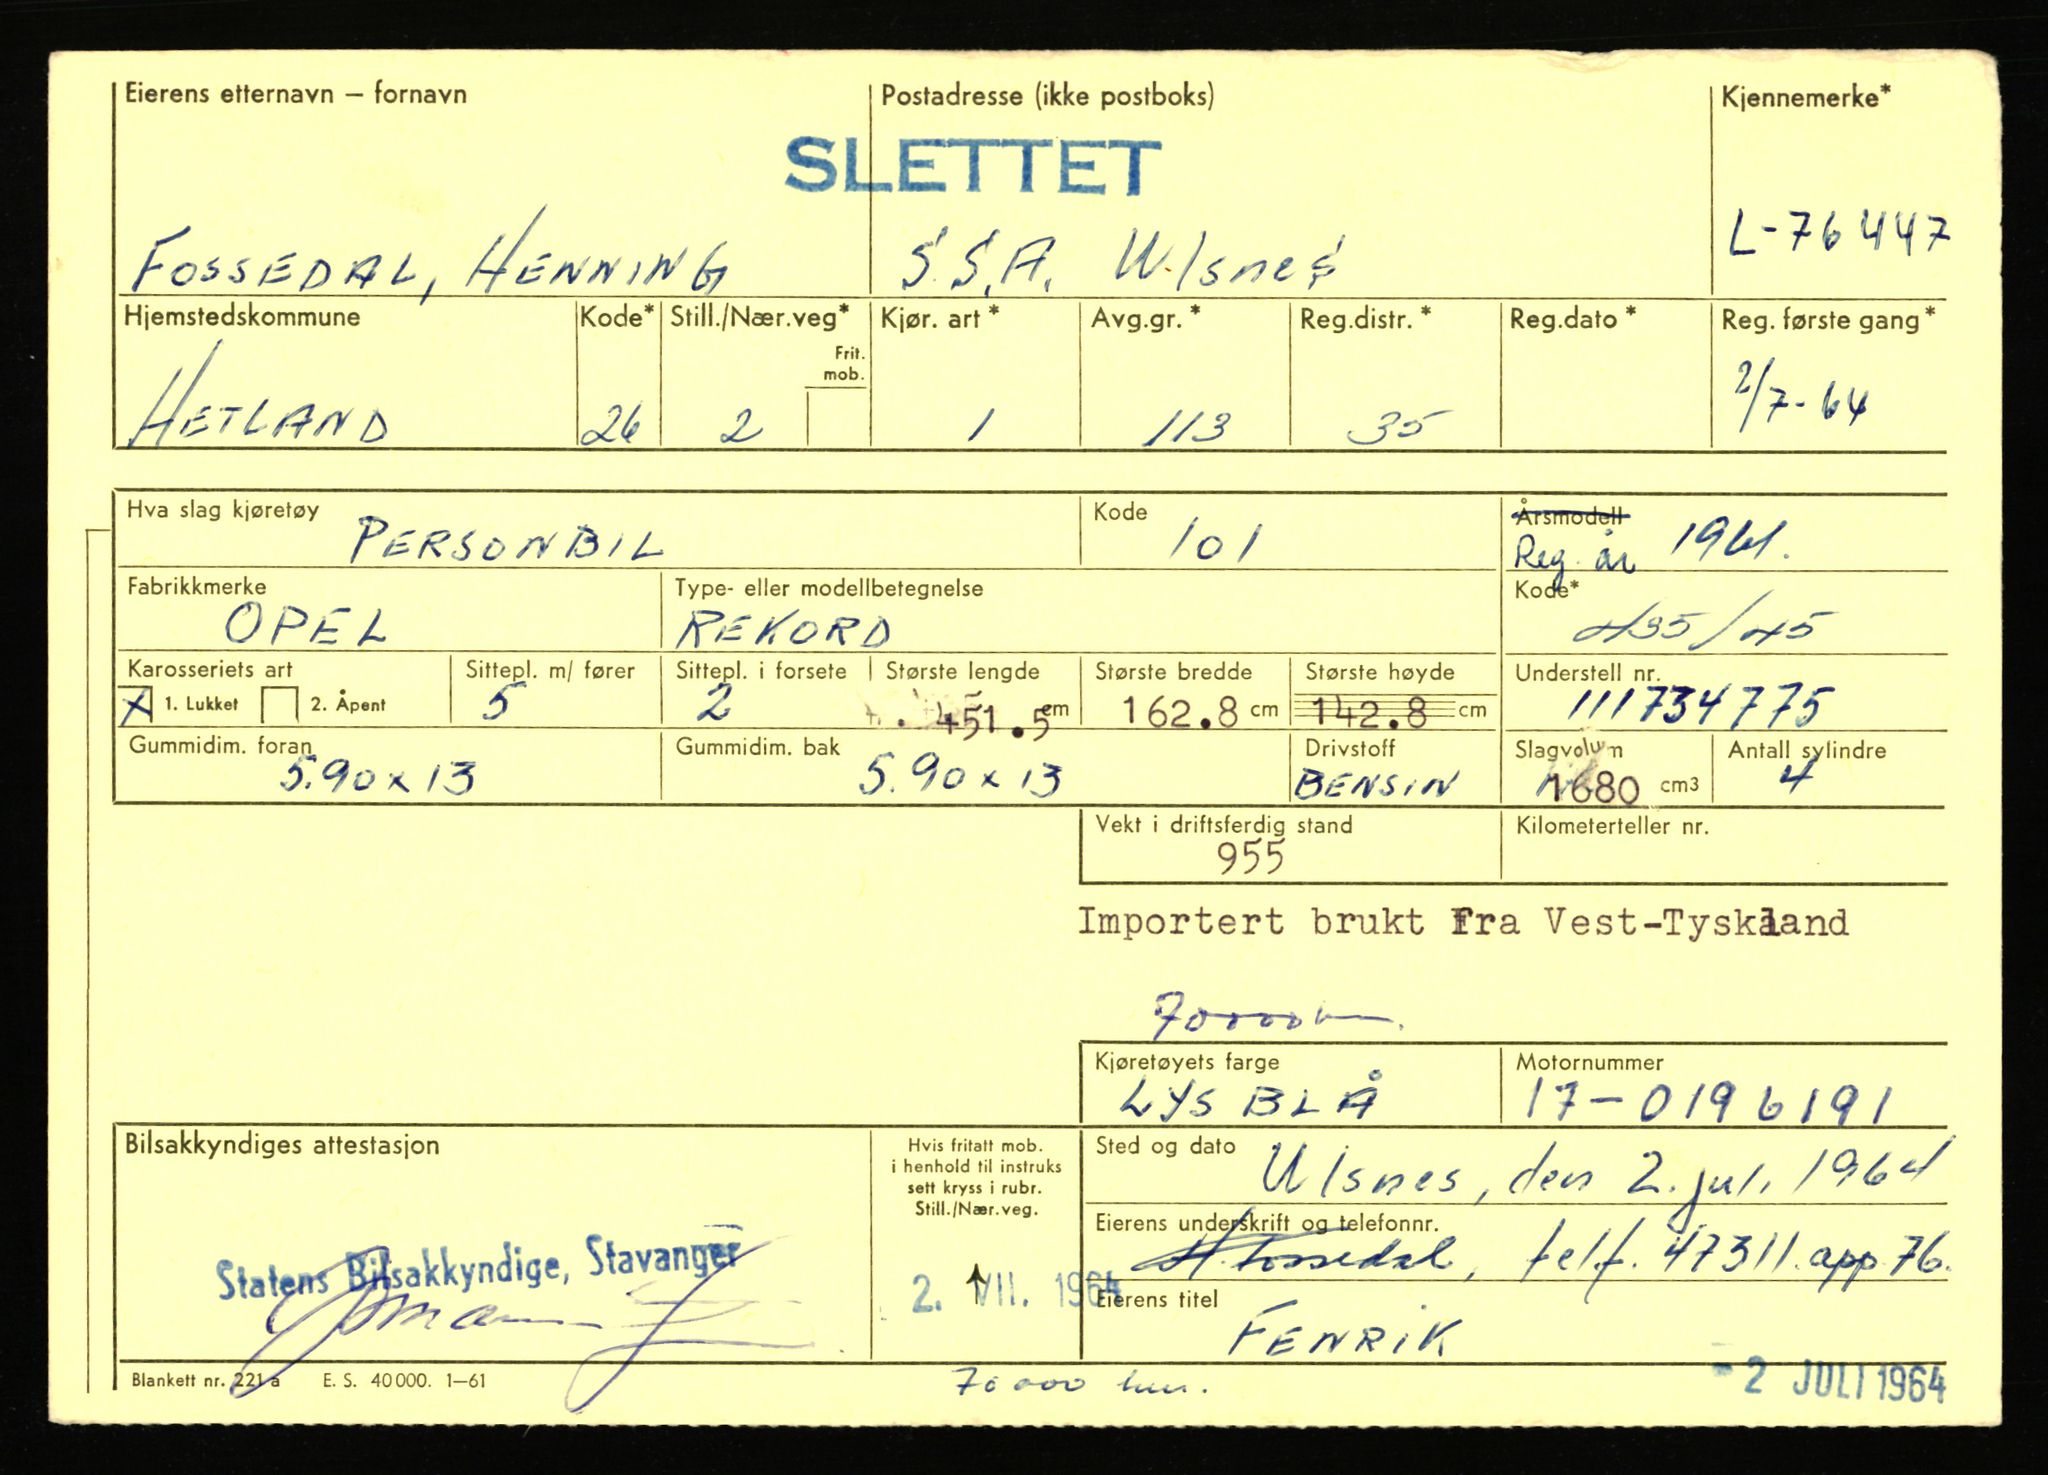 Eierens etternavn – fornavn
Postadresse (ikke postboks)
Kjennemerke*
SLETTET
FOSSEDAL, HENNING
S.S.A. Ulsnes
L-76447
Hjemstedskommune
Kode*
Still./Nær.veg*
Frit. mob.
Kjør. art *
Avg.gr. *
Reg.distr. *
Reg.dato *
Reg. første gang *
HETLAND
26
2
1
113
35
2/7-64
Hva slag kjøretøy
PERSONBIL
Kode
101
Årsmodell
Reg. år 1961.
Fabrikkmerke
OPEL
Type- eller modellbetegnelse
REKORD
Kode*
435/45
Karosseriets art
X 1. Lukket 2. Åpent
Sittepl. m/ fører
5
Sittepl. i forsete
2
Største lengde
451.5 cm
Største bredde
162.8 cm
Største høyde
142.8 cm
Understell nr.
111734775
Gummidim. foran
5.90 x 13
Gummidim. bak
5.90 x 13
Drivstoff
BENSIN
Slagvolum
1680 cm3
Antall sylindre
4
Vekt i driftsferdig stand
955
Kilometerteller nr.
Importert brukt Fra Vest-Tyskland
70000 km.
Kjøretøyets farge
LYS BLÅ
Motornummer
17-0196191
Bilsakkyndiges attestasjon
Statens Bilsakkyndige, Stavanger
Hvis fritatt mob.
i henhold til instruks
sett kryss i rubr.
Still./Nær.veg.
2. VII. 1964
Sted og dato
Ulsnes, den 2. juli 1964
Eierens underskrift og telefonnr.
H. Fossedal, telf. 47311. app 76.
Eierens titel
FENRIK
Blankett nr. 221 a E. S. 40000. 1–61
70 000 km.
- 2 JULI 1964